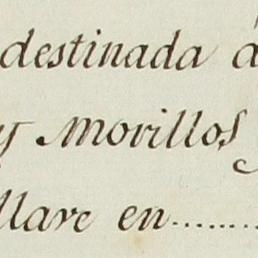 destinada á
y Morillos
llave en........